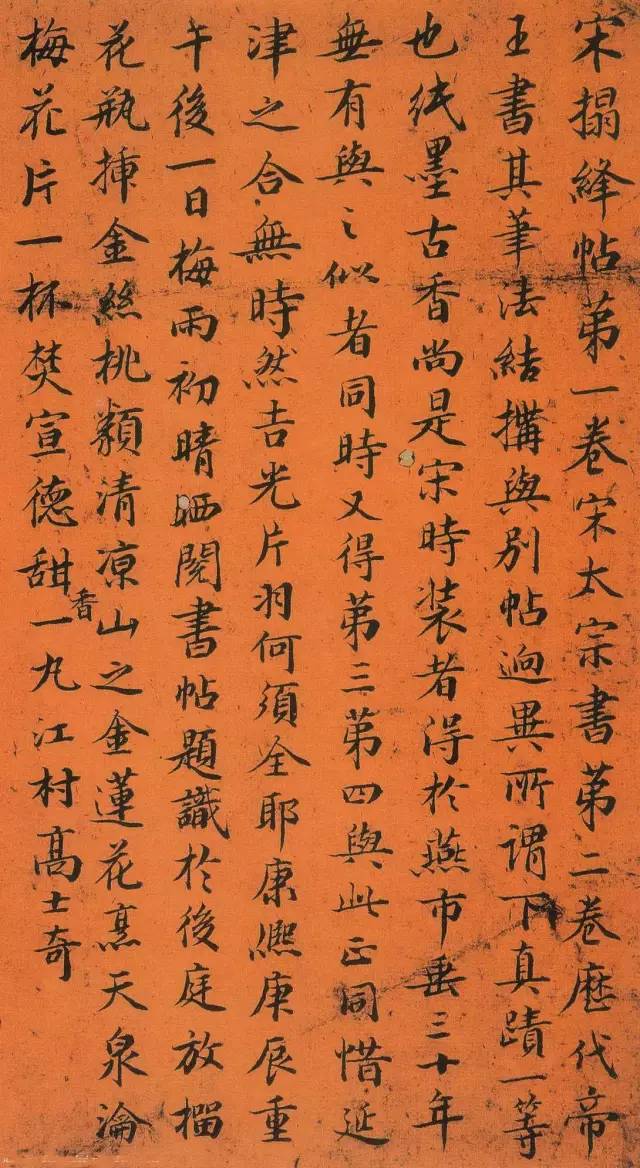 宋搨絳帖第一卷宋太宗書第二卷歷代帝
王書其筆法結構與別帖迥異所謂下真蹟一等
也紙墨古香尚是宋時装者得於燕市垂三十年
無有與之似者同時又得第三第四與此正同惜延
津之合無時然吉光片羽何須全耶康熈庚辰重
午後一日梅雨初晴晒閱書帖題識於後庭放榴
花瓶挿金絲桃類清凉山之金蓮花烹天泉瀹
梅花片一杯焚宣德甜香一丸江村高士奇